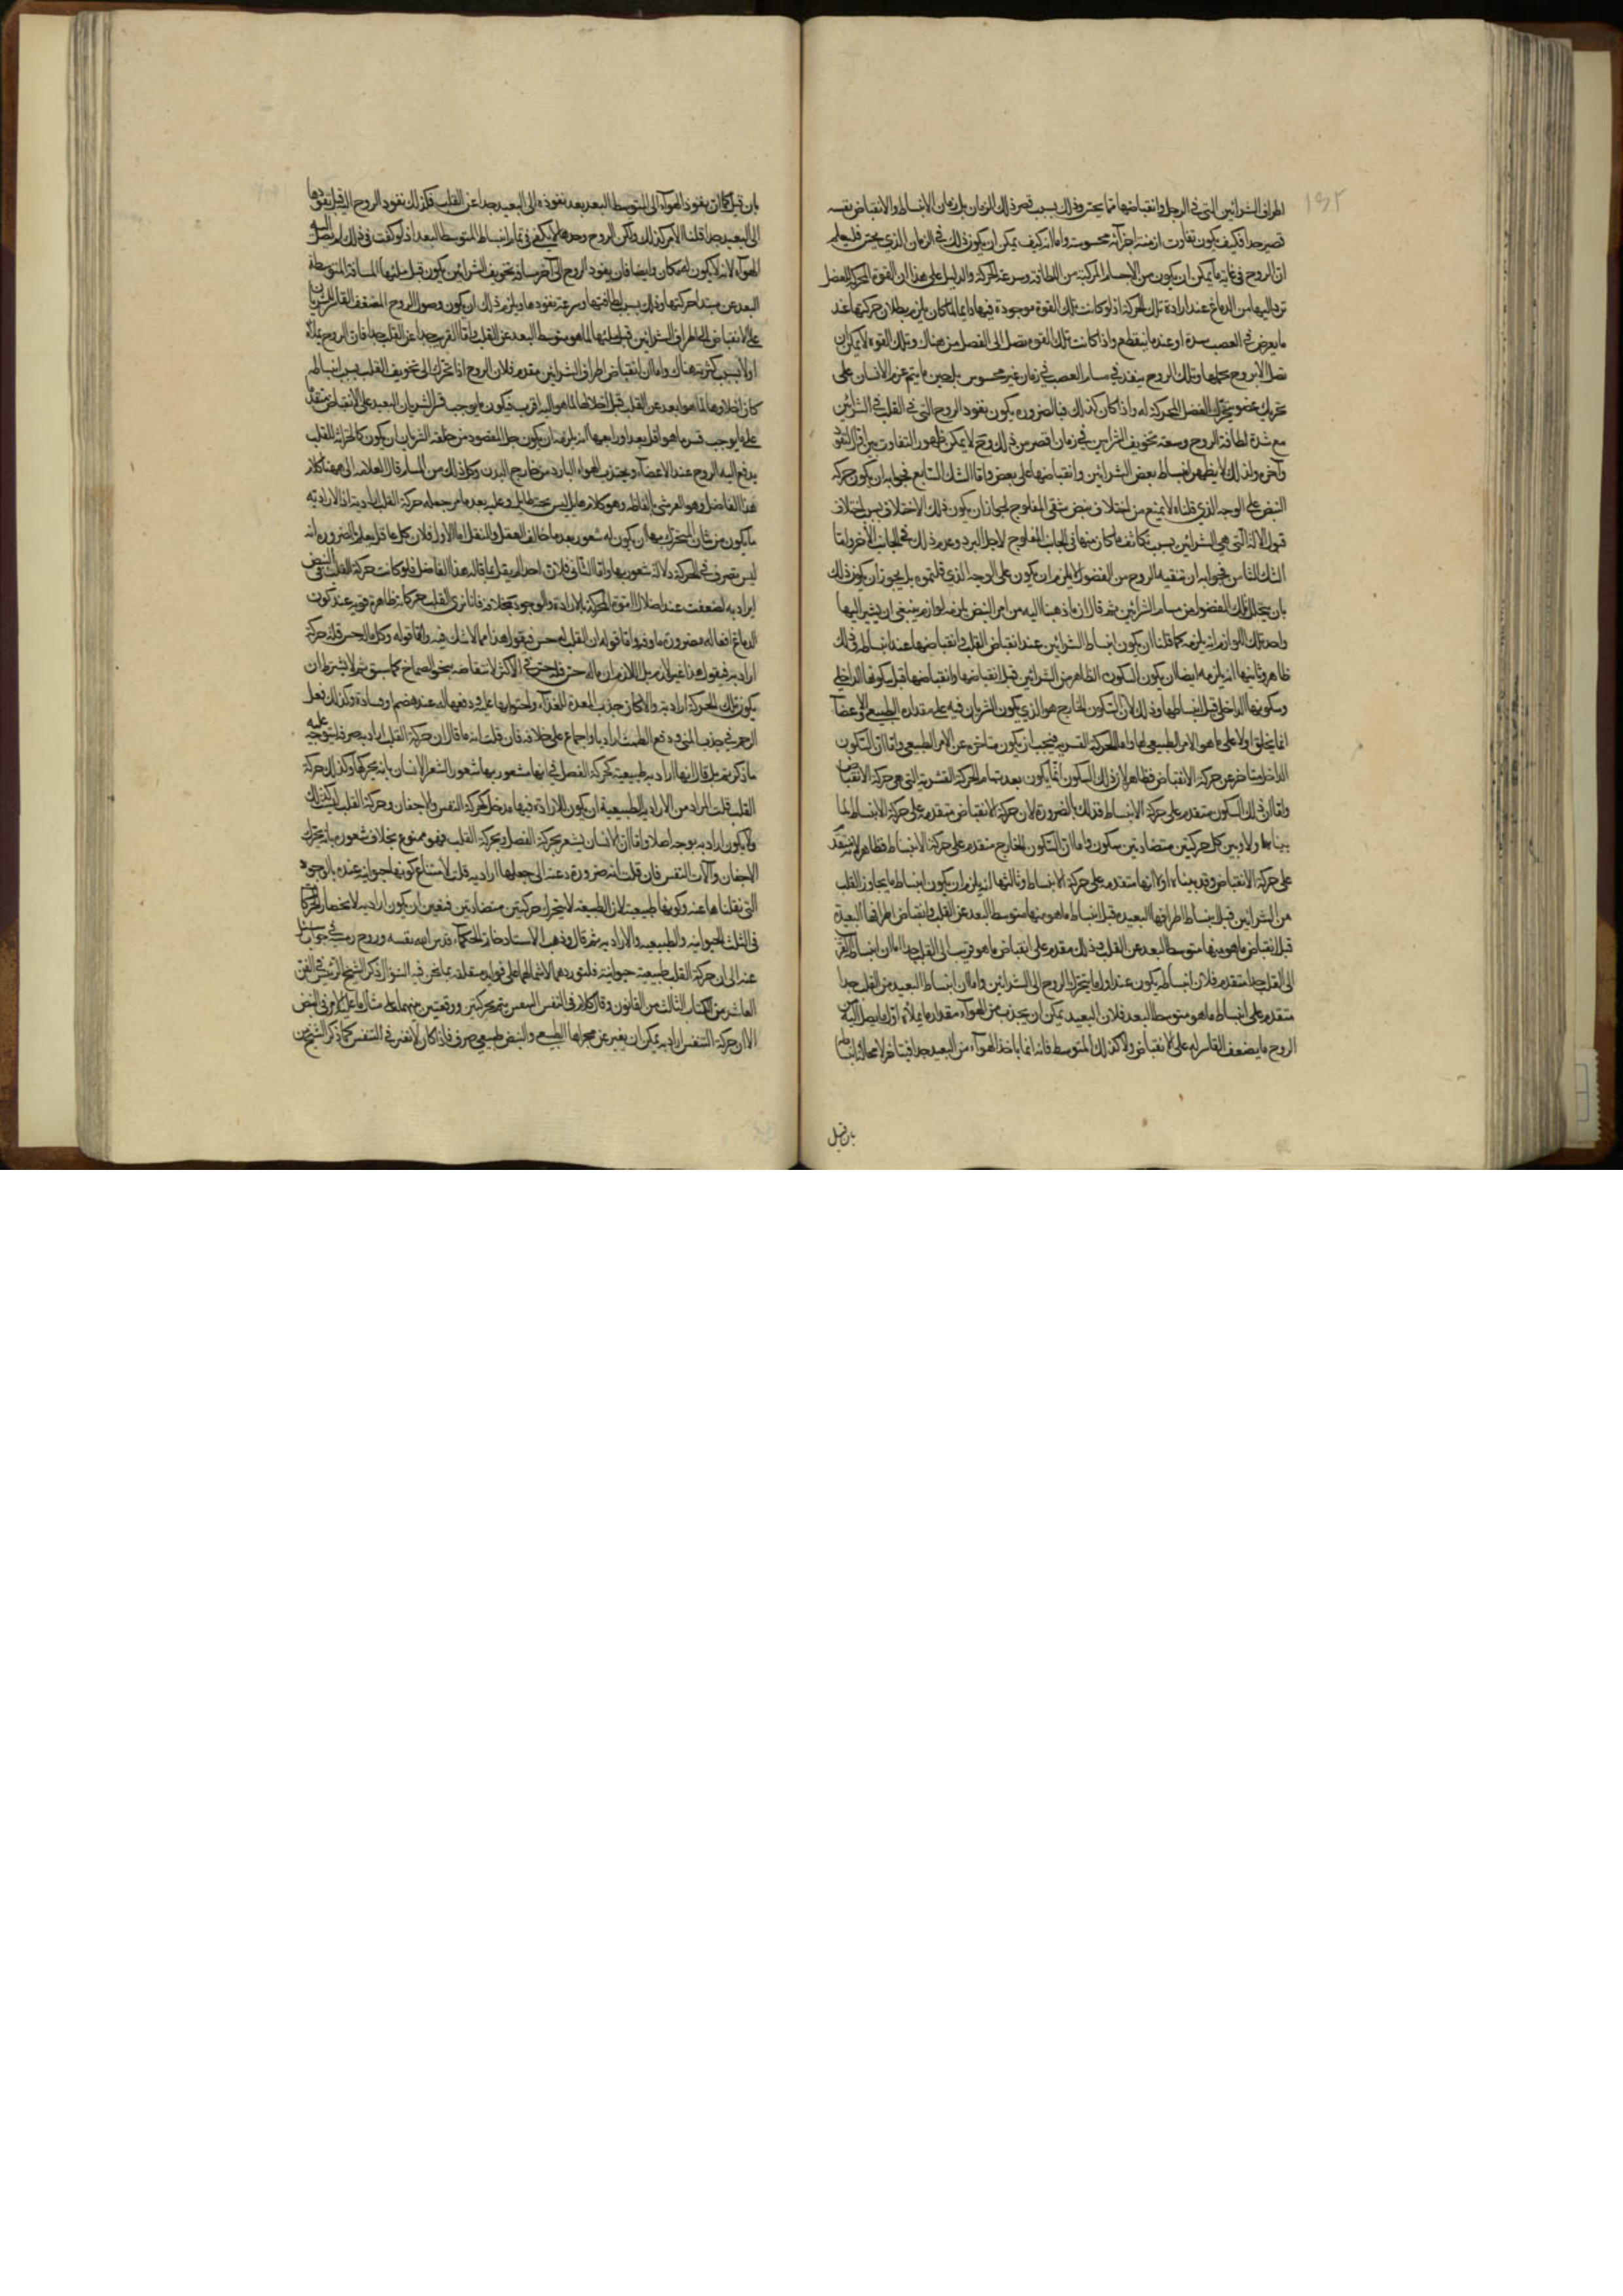 اطراف الشرائين التى فى الرجل وانقباضها مما يحس وذلك بسبب قصر ذلك الزمان بل زمان الانبساط والانقباض نفسه
قصير جدا فكيف يكون تفاوت ازمنة اجزائه محسوسة واما انه كيف يمكن ان يكون ذلك فى الزمان الذى يحس
ان الروح فى غاية ما يمكن ان يكون من الاجسام المركبة من اللطافة وسرعة الحركة والدليل على هذا ان القوة المحركة للعضل
اليها من الدماغ عند ارادة تلك الحركة اذ لو كانت تلك القوة موجودة فيها دايما لما كان يلزم بطلان حركتها عند
ما يعرض فى العصب سدة او عند ما ينقطع واذا كانت تلك القوة تصل الى العضل من هناك وتلك القوة لا يمكن ان
تصل الا بروح يحملها وتلك الروح ينفذ فى مسام العصب فى زمان غير محسوس بل حين ما يتم عزم الانسان على
تحريك عضو يتحرك العضل المحركة له واذا كان كذلك فبالضرورة يكون نفوذ الروح التى فى القلب فى الشرائين
مع شدة لطافة الروح وسعة تجويف الشرايين فى زمان اقصر من ذلك وح لا يمكن ظهور التفاوت بين اول النفوذ
وآخره ولذلك لا يظهر انبساط بعض الشرائين وانقباضها على بعض واما الشك السابع فجوابه ان يكون حركة
النبض على الوجه الذى قلناه لا يمنع من اختلاف نبض شقى المفلوج لجواز ان يكون ذلك الاختلاف بسبب اختلاف
قبول الالة التى هى الشرائين بسبب تكاثف ما كان منها فى الجانب المفلوج لاجل البرد وعدم ذلك فى الجانب الآخر واما
الشك الثامن فجوابه ان تنقية الروح من الفضول لا يلزم ان يكون على الوجه الذى قلتموه بل يجوز ان يكون ذلك
بان يتحلل تلك الفضول من مسام الشرائين ثم قال ان ما ذهبنا اليه من امر النبض يلزمه لوازم ينبغى ان يشير اليها
واحد تلك اللوازم انه يلزمه كما قلنا ان يكون انبساط الشرائين عند انقباض القلب وانقباضها عند انبساطه وذلك
ظاهر وثانيها انه يلزمه ايضا ان يكون السكون الظاهر من الشرائين قبل انقباضها وانقباضها قبل سكونها الداخلى
وسكونها الداخلى قبل انبساطها وذلك لان السكون الخارج هو الذى يكون الشريان فيه على مقداره الطبيعى
انما يخلق اولا على ما هو الامر الطبيعى لها واما الحركة القسرية فيجب ان يكون متاخرة عن الامر الطبيعى واما ان السكون
الداخل متاخر عن حركة الانقباض فظاهر لان ذلك السكون انما يكون بعد تمام الحركة القسرية التى هى حركة الانقباض
واما ان ذلك السكون متقدم على حركة الانبساط فذلك بالضرورة لان حركة الانقباض متقدمة على حركة الانبساط لما
بيناها ولا بد بين كل حركتين متضادتين سكون واما ان السكون الخارج متقدم على حركة الانبساط فظاهر لانه متقدم
على حركة الانقباض وقد بينا اولا انها متقدمة على حركة الانبساط وثالثها انه يلزم ان يكون انبساط ما يجاوز القلب
من الشرائين قبل انبساط اطرافها البعيدة قبل انبساط ما هو منها متوسط البعد عن القلب وانقباض اطرافها البعيدة
قبل انقباض ما هو منها متوسط البعد عن القلب وذلك مقدم على انقباض ما هو قريب الى القلب جدا اما ان انبساط القريب
الى القلب جدا متقدم فلان انبساطه يكون عند اول ما يتحرك الروح الى الشرائين واما ان انبساط البعيد من القلب جدا
متقدم على انبساط ما هو متوسط البعد فلان البعيد يمكن ان يجذب من الهوآء مقدار ما يملأه اول ما يصل اليه من
الروح ما يضعف القاسر له على الانقباض ولا كذلك المتوسط فانه انما ياخذ الهوآء من البعيد جدا فيتاخر لا محالة انبساطه
بان قيل
بان قيل كما ان نفوذ الهوآء الى المتوسط البعد بعد نفوذه الى البعيد جدا عن القلب فكذلك نفوذ الروح اليه قبل نفوذها
الى البعيد جدا قلنا الامر كذلك ولكن الروح وحدها لا يكفى فى تمام انبساط المتوسط البعد اذ لو كفت فى ذلك لم يصل اليه
الهوآء لانه لا يكون له مكان وايضا فان نفوذ الروح الى آخر مسافة تجويف الشرائين يكون قبل ملئها المسافة المتوسطة
البعد عن مبتدا حركتها وذلك بسبب لطافتها وسرعة نفوذها ويلزم ذلك ان يكون وصول الروح المضعف القاسر للشريان
على الانقباض الى اطراف الشرائين قبل ملئها لما هو متوسط البعد عن القلب واما القريب جدا عن القلب جدا فان الروح يملأه
اولا بسبب كثرته هناك واما ان انقباض اطراف الشرائين مقدم فلان الروح اذا تحرك الى تجويف القلب بسبب انبساطه
كان اخلاؤها لما هو ابعد عن القلب قبل اخلائها لما هو اليه اقرب فيكون ما يوجب قسر الشريان البعيد على الانقباض متقدما
على ما يوجب قسر ما هو اقل بعدا ورابعها انه يلزمه ان يكون جل المقصود من خلقة الشريان ان يكون كالخزانة للقلب
يدفع اليه الروح عند الاعضآء ويجتذب الهوآء البارد من خارج البدن وكل ذلك من المسام قال العلامة الى هنا كلام
هذا الفاضل وهو القرشى بالفاظه وهو كلام هايل ليس تحته طايل وعليه بعد ما مر جملة حركة القلب ارادية اذ الارادية
ما يكون من شان المتحرك بها ان يكون له شعور بعد ما خالف العقل والنقل اما الاول فلان كل عاقل يعلم بالضرورة انه
ليس تصرف فى الحركة دلالة شعور بها واما الثانى فلان احدا لم يقل بما قاله هذا الفاضل فلو كانت حركة القلب
ارادية لضعفت عند اختلال القوة المحركة بالارادة والوجود بخلافه فانا نرى القلب حركاته ظاهرة قوية عند كون
الدماغ افعاله مضرورة ماوفة واما قوله ان القلب له حس فيقول هذا مما لا شك فيه واما قوله وكل ماله حس فله حركة
ارادية فيقول هذا غير لازم بل اللازم ان ماله حس فله حس فى الاكثر لانتقاضه بنحو الصماخ كما سبق ثم لا يشترط ان
يكون تلك الحركة ارادية والا لكان جذب المعدة للغذآء واحتوائها عليه ودفعها له عند هضم او فسادة وكذلك فعل
الرحم فى جذب المنى ودفع الطمث اراديا والاجماع على خلافه فان قلت انه ما قال ان حركة القلب ارادية صرفة ليتوجه عليه
ما ذكرتم بل قال انها ارادية طبيعية كحركة العضل فى انها مشعور بها شعور الانسان بانه يحركها وكذلك حركة
القلب قلت المراد من الارادية الطبيعية ان يكون للارادة فيها مدخل كحركة التنفس والاجفان وحركة القلب ليست كذلك
ولا يكون ارادية بوجه اصلا واما ان الانسان يشعر بحركة العضل وبحركة القلب فهو ممنوع بخلاف شعوره بانه يحرك
الاجفان وآلات التنفس فان قلت انه ضرورة دعته الى جعلها ارادية قلت لامتناع كونها حيوانية عنده بالوجوه
التى نقلناها عنه وكونها طبيعية لان الطبيعة لا يتحرك حركتين متضادتين فتعين ان يكون ارادية لانحصار الحركات
فى الثلث الحيوانية والطبيعية والارادية ثم قال وذهب الاستاد خاتم الحكمآء قدس الله نفسه وروح رمسه فى جواب
عنه الى ان حركة القلب طبيعية حيوانية فلنوردهما لاشتمالهما على فوايد متعلقة بما نحن فيه السؤال ذكر الشيخ الرئيس فى الفن
العاشر من الكتاب الثالث من القانون وقال كلام فى التنفس التنفس يتم بحركتين ووقفتين بينهما على مثال ما عليه الامر فى النبض
الا ان حركة التنفس ارادية يمكن ان يغير عن مجراها الطبيعى والنبض طبيعى صرف فاذا كان لا نفس فى التنفس كما ذكر الشيخ